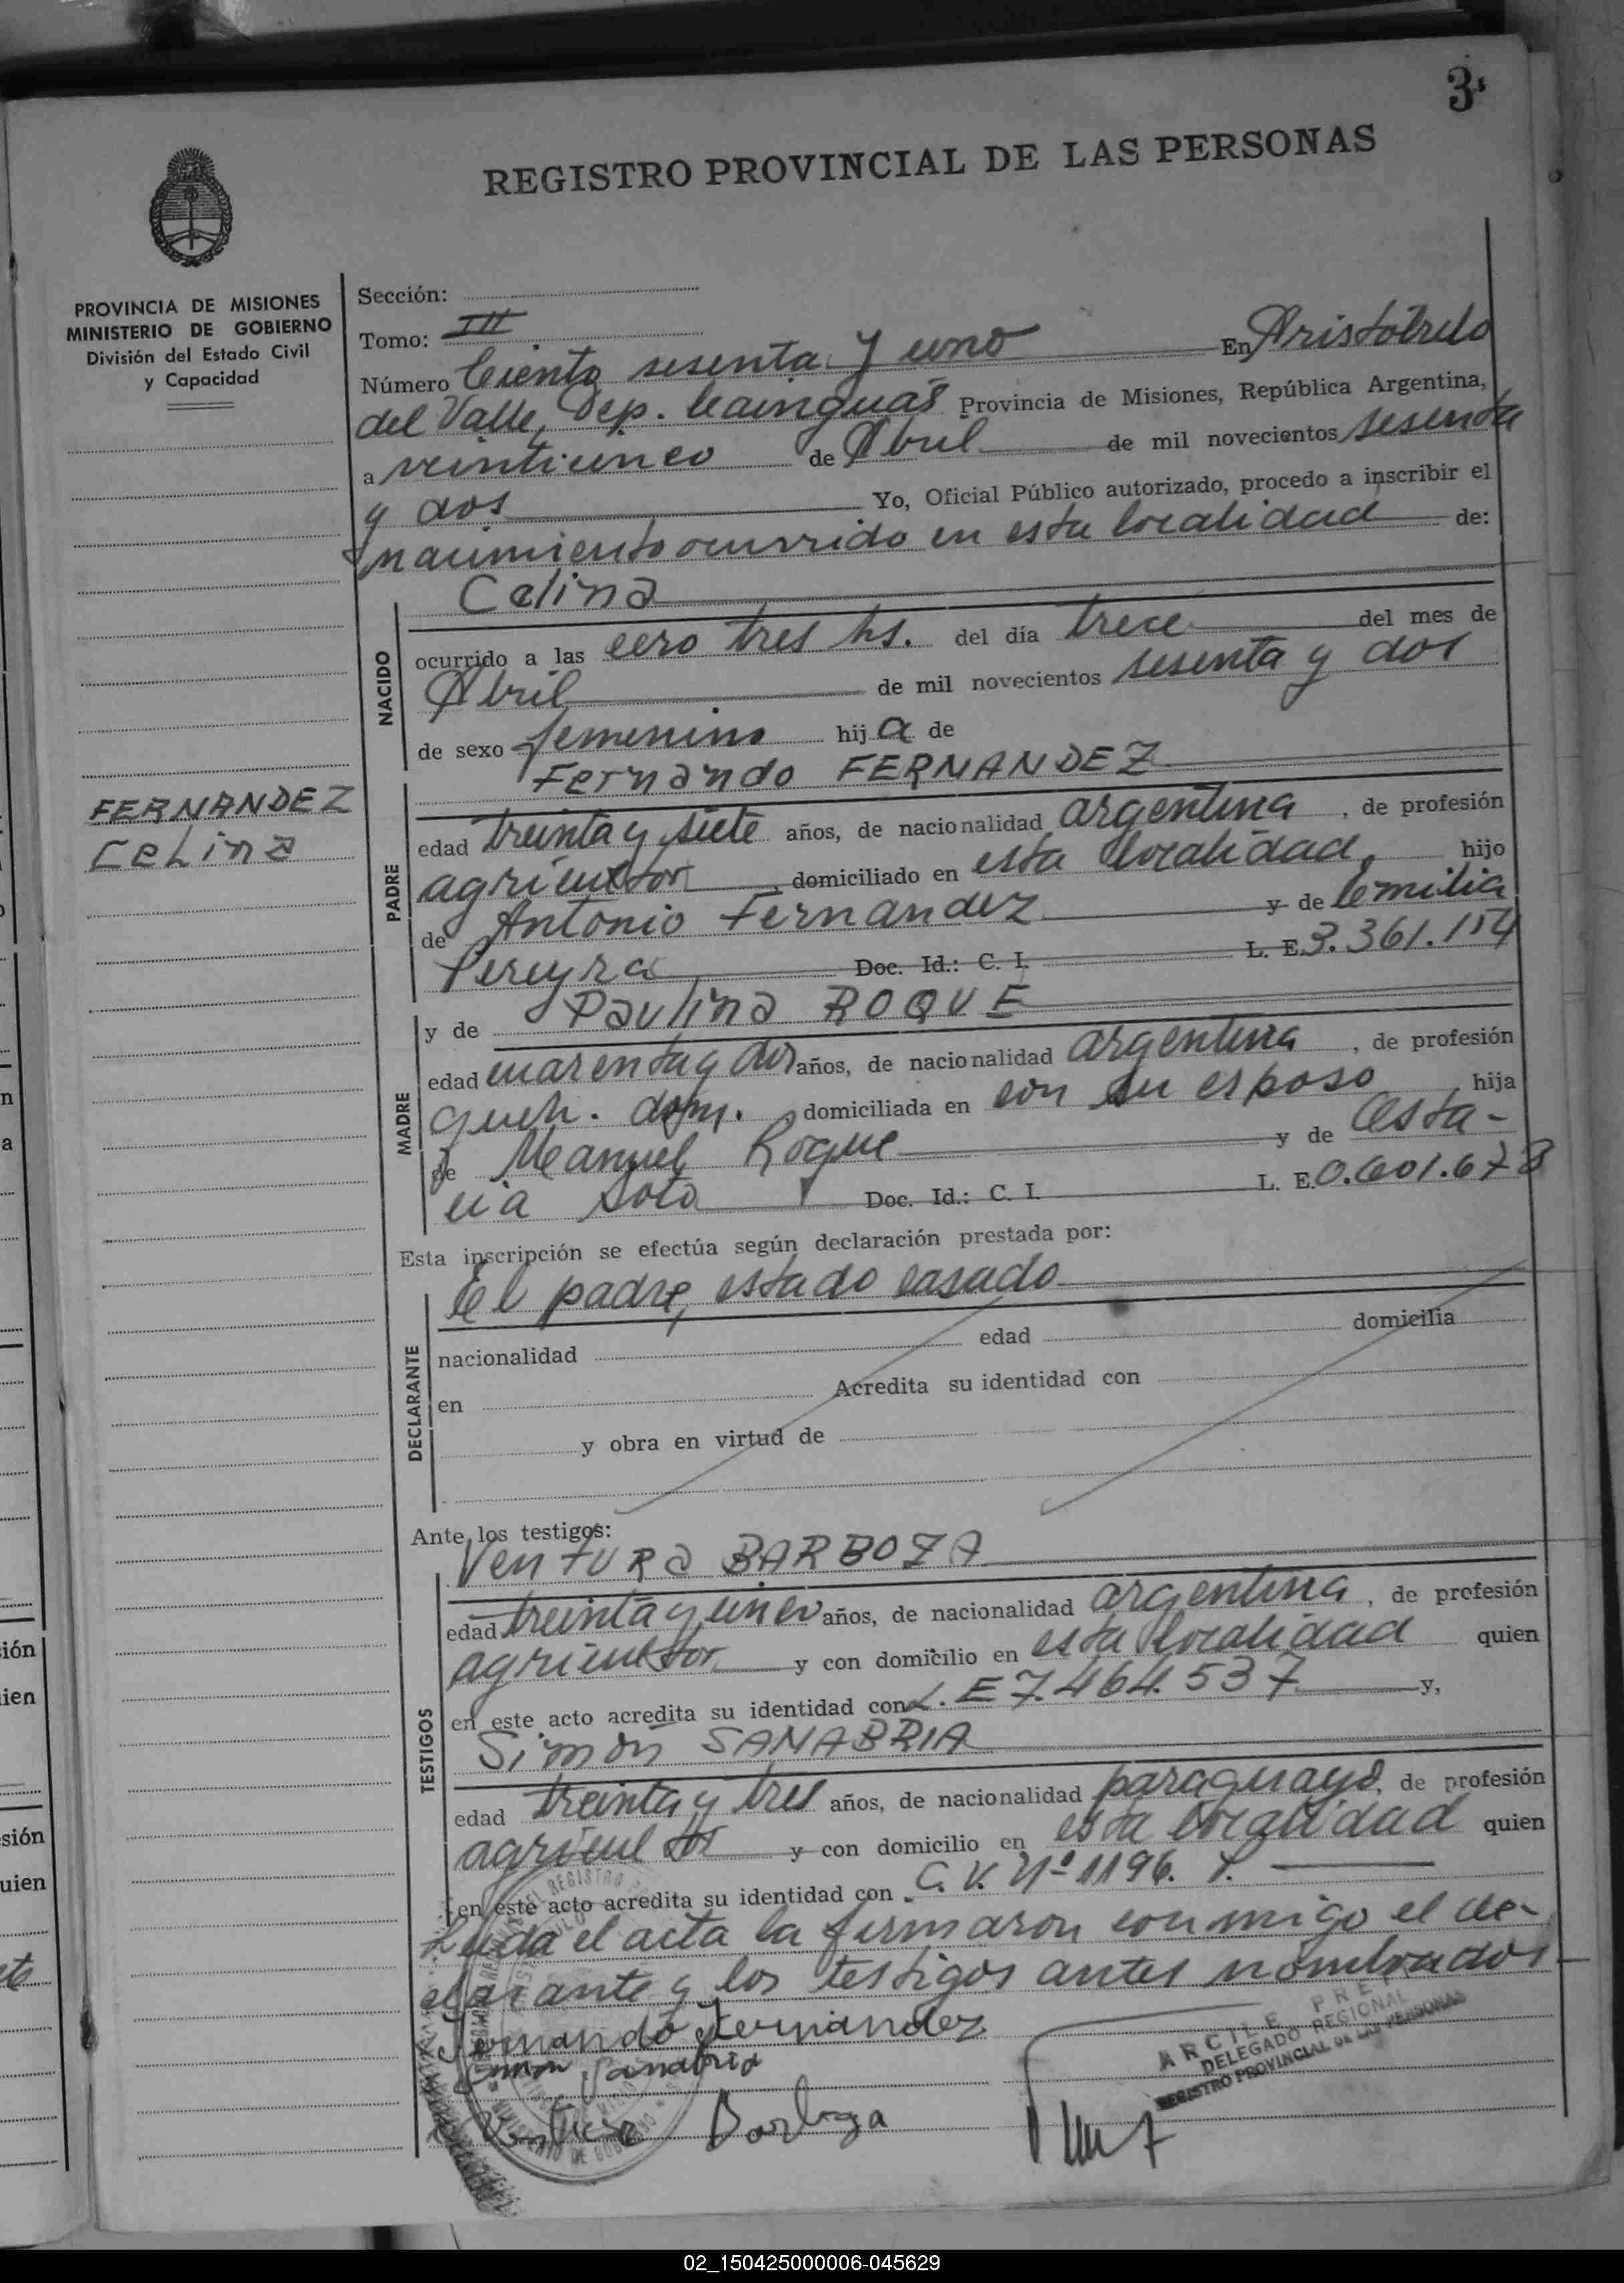 3
REGISTRO PROVINCIAL DE LAS PERSONAS
PROVINCIA DE MISIONES
MINISTERIO DE GOBIERNO
División del Estado Civil
y Capacidad
FERNANDEZ
Celina
Sección:
Tomo: III
Número Ciento sesenta y uno En Aristóbulo
del Valle, Dep. Cainguás Provincia de Misiones, República Argentina,
a veinticinco de Abril de mil novecientos sesenta
y dos Yo, Oficial Público autorizado, procedo a inscribir el
nacimiento ocurrido en esta localidad de:
NACIDO
Celina
ocurrido a las cero tres hs. del día trece del mes de
Abril de mil novecientos sesenta y dos
de sexo femenino hija de
PADRE
Fernando FERNANDEZ
edad treinta y siete años, de nacionalidad argentina, de profesión
agricultor, domiciliado en esta localidad, hijo
de Antonio Fernandez y de Emilia
Pereyra Doc. Id.: C. I. L. E. 3.361.154
MADRE
y de Paulina ROQUE
edad cuarenta y dos años, de nacionalidad argentina, de profesión
queh. dom. domiciliada en con su esposo, hija
de Manuel Roque y de Esta-
cia Soto Doc. Id.: C. I. L. E. 0.601.678
Esta inscripción se efectúa según declaración prestada por:
DECLARANTE
El padre, estado casado
nacionalidad edad domicilia
en Acredita su identidad con
y obra en virtud de
Ante los testigos:
TESTIGOS
Ventura BARBOZA
edad treinta y cinco años, de nacionalidad argentina, de profesión
agricultor y con domicilio en esta localidad quien
en este acto acredita su identidad con L. E 7.464.537 y,
Simón SANABRIA
edad treinta y tres años, de nacionalidad paraguayo, de profesión
agricultor y con domicilio en esta localidad quien
en este acto acredita su identidad con C. V. Nº 1196. P.
Leida el acta la firmaron conmigo el de-
clarante y los testigos antes nombrados
Fernando Fernandez
Simon Sanabria
Ventura Barboza
DELEGADO REGIONAL
REGISTRO PROVINCIAL DE LAS PERSONAS
02_150425000006-045629